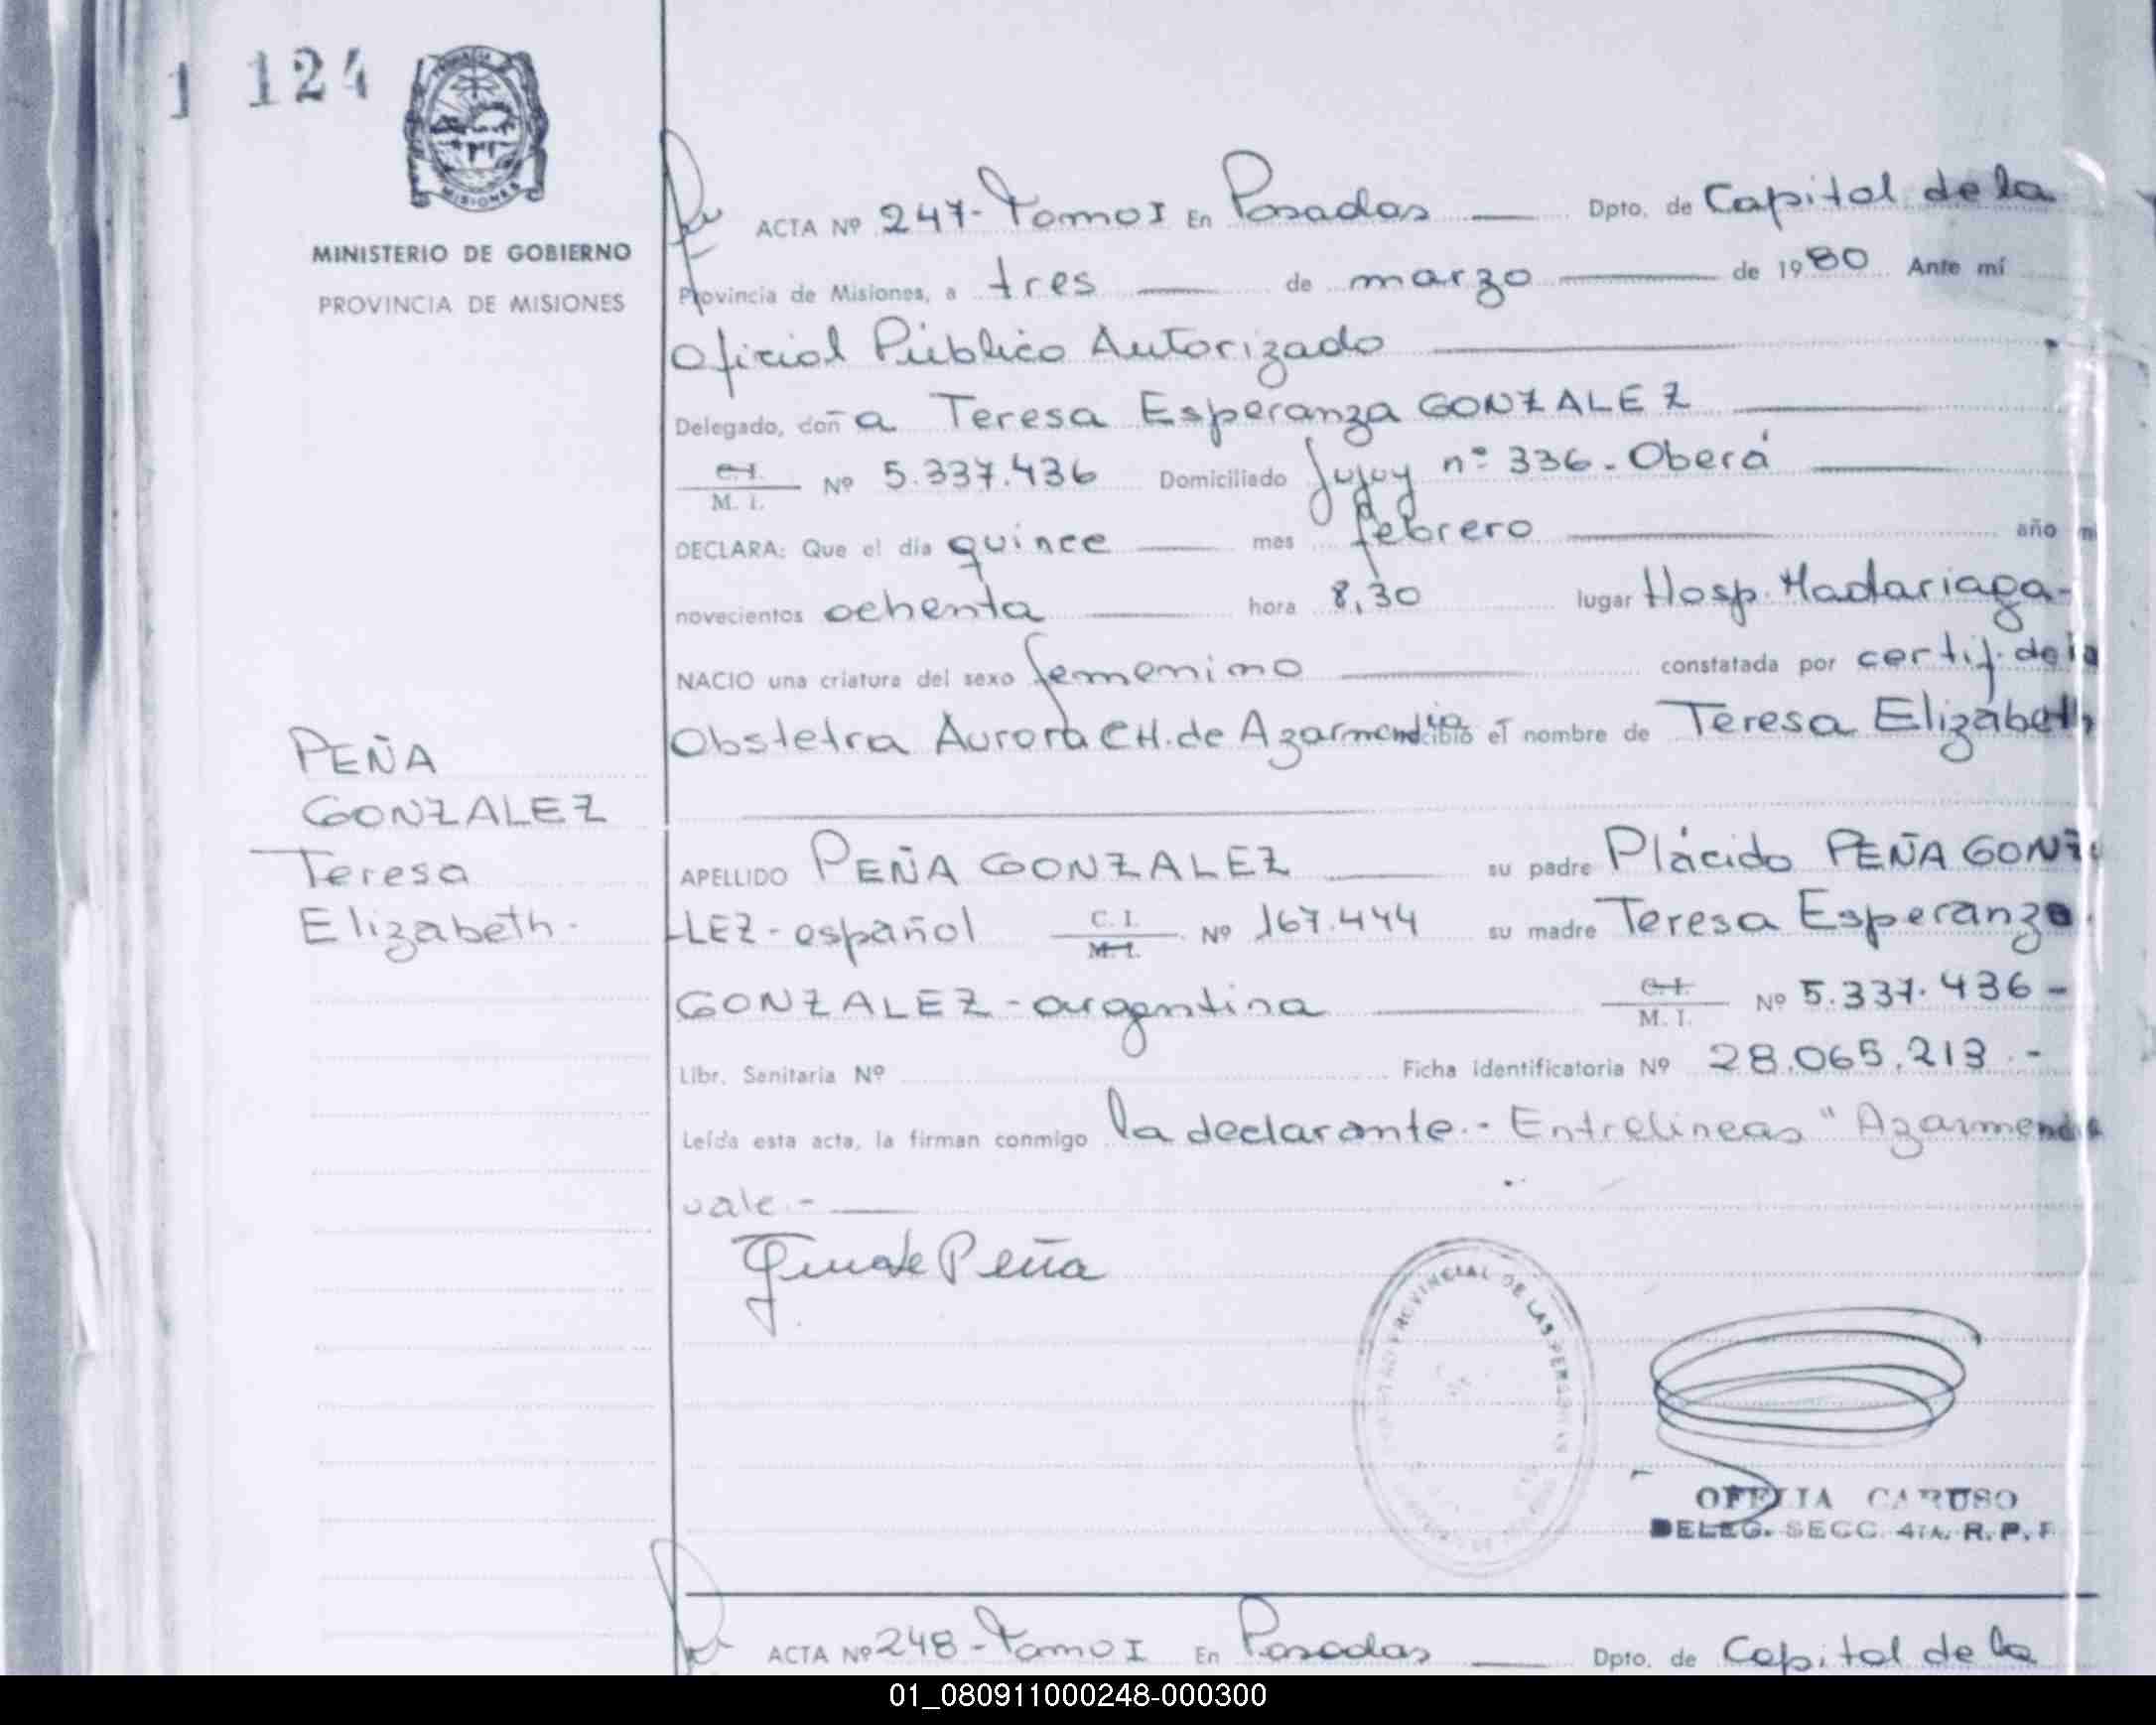 1 124
PROVINCIA DE
MISIONES
MINISTERIO DE GOBIERNO
PROVINCIA DE MISIONES
ACTA Nº 247- Tomo I En Posadas Dpto. de Capital de la
Provincia de Misiones, a tres de marzo de 1980 Ante mí
Oficial Público Autorizado
Delegado, doña Teresa Esperanza GONZALEZ
C.I.
M. I. Nº 5.337.436 Domiciliado Jujuy nº 336. Oberá
DECLARA: Que el día quince mes febrero año m
novecientos ochenta hora 8,30 lugar Hosp. Madariaga-
NACIO una criatura del sexo femenino constatada por certif. de la
Obstetra Aurora CH. de Azarmendia cibió el nombre de Teresa Elizabeth
PEÑA
GONZALEZ
Teresa
Elizabeth.
APELLIDO PEÑA GONZALEZ su padre Plácido PEÑA GONZ
LEZ - español C. I.
M. I. Nº 167.444 su madre Teresa Esperanza
GONZALEZ - argentina C.I.
M. I. Nº 5.337.436 -
Libr. Sanitaria Nº Ficha identificatoria Nº 28.065.213.-
Leída esta acta, la firman conmigo la declarante.- Entrelineas "Azarmendia
vale.-
de Peña
PROVINCIAL DE LAS PERSONAS
OFELIA CARUSO
DELEG. SECC. 4TA. R. P. P
ACTA Nº 248- Tomo I En Posadas Dpto. de Capital de la
01_080911000248-000300